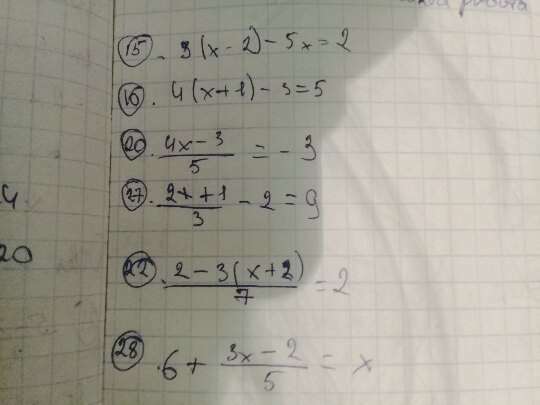 работа
15. 3(x-2)-5x=2
16. 4(x+1)-3=5
20. (4x-3)/5 = -3
27. (2x+1)/3 - 2 = 9
22. (2-3(x+2))/7 = 2
28. 6 + (3x-2)/5 = x
4
20